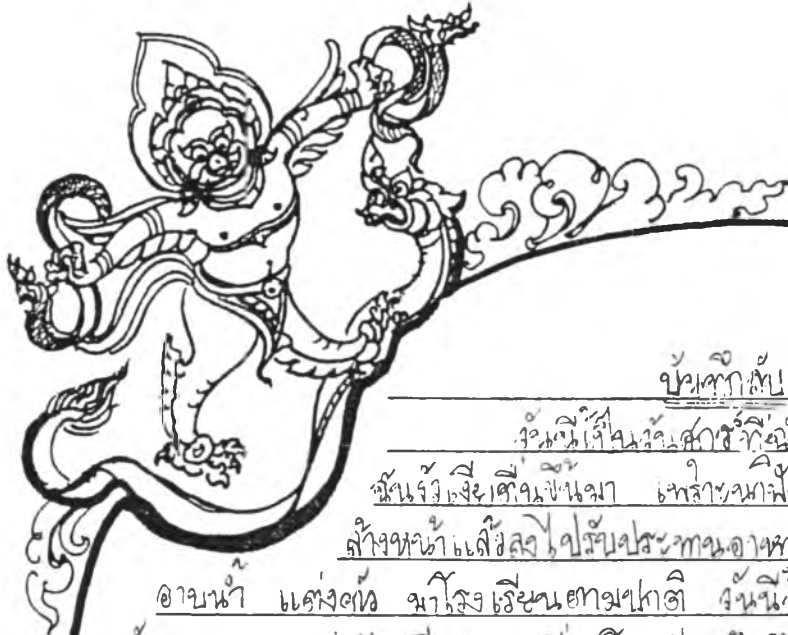 บันทึกลับ
วันนี้เป็นวันศุกร์ที่
ฉันงัวเงียตื่นขึ้นมา เพราะนาฬิ
ล้างหน้าแล้วลงไปรับประทานอาห
อาบน้ำ แต่งตัว มาโรงเรียนตามปกติ วันนี้